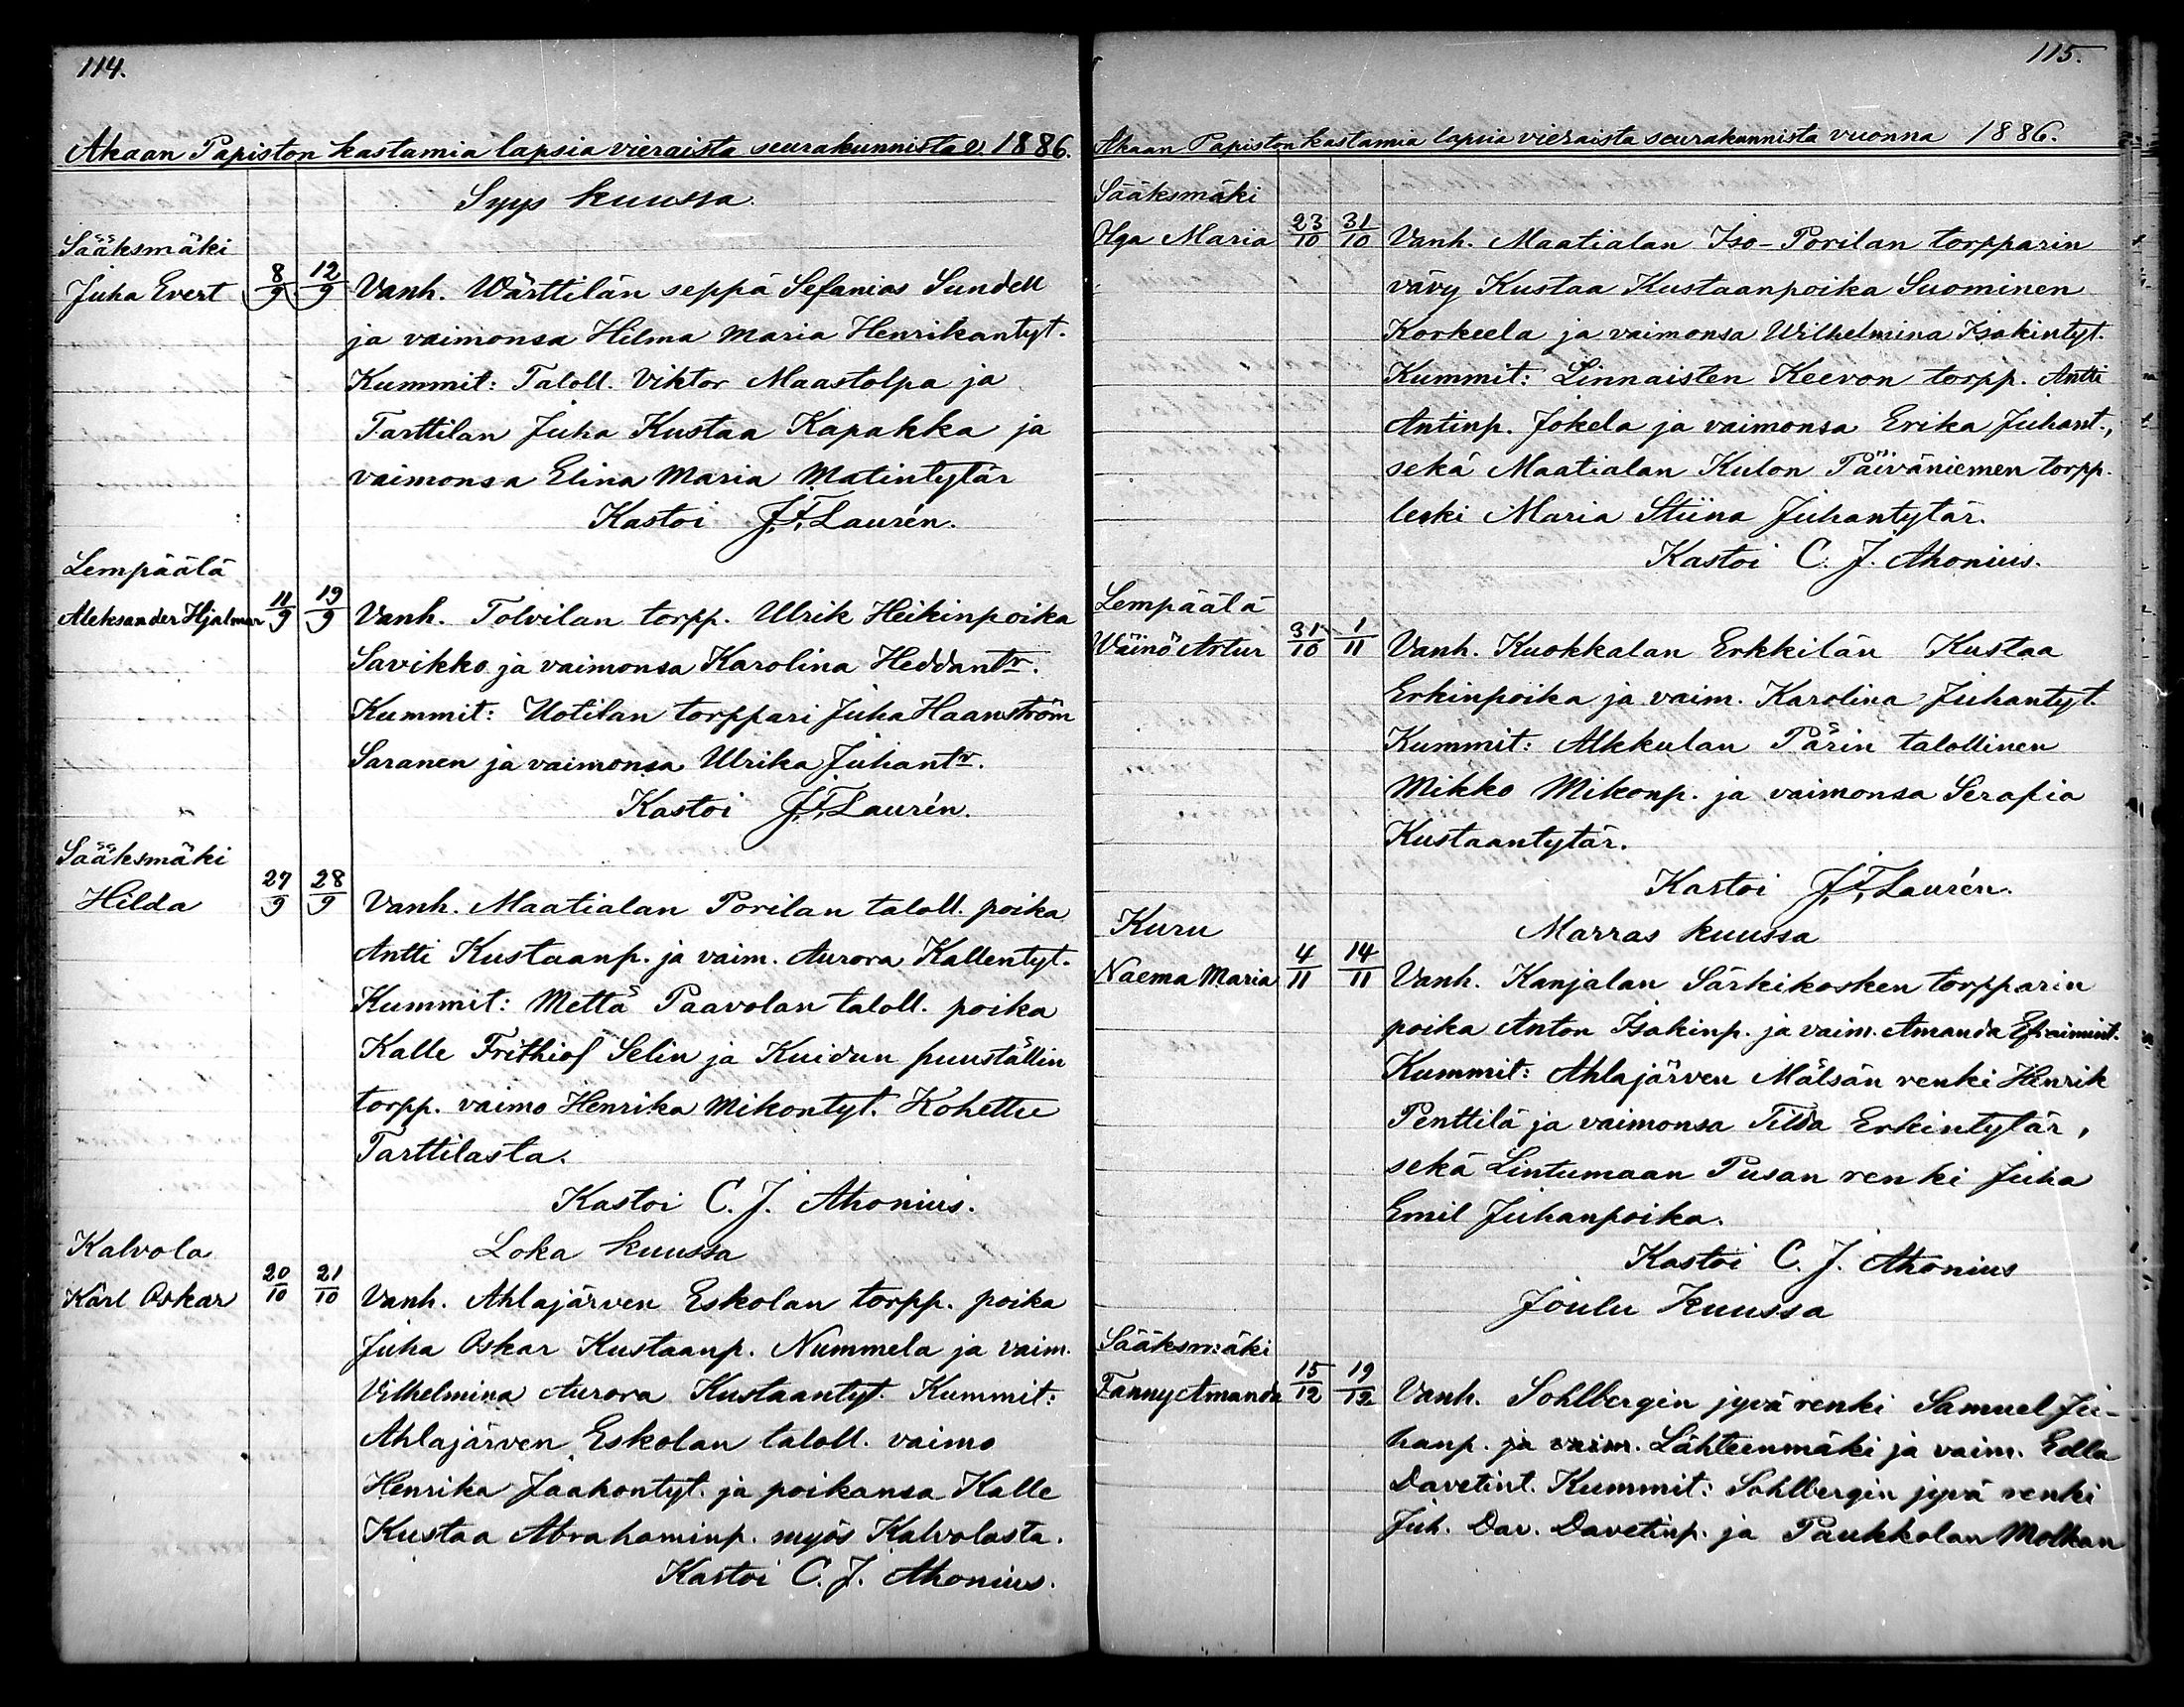 114.
Akaan Papiston kastamia lapsia vieraista seurakunnista v. 1886.
Syys kuussa
Sääksmäki
Juha Evert 8/9 12/9 Vanh. Wärttilän seppä Sefanias Sundell
ja vaimonsa Hilma Maria Henrikantyt.
Kummit: Taloll. Viktor Maastolpa ja
Tarttilan Juha Kustaa Kapakka ja
vaimonsa Elina Maria Matintytär
Kastoi J. F. Laurén.
Lempäälä
Aleksander Hjalmar 11/9 19/9 Vanh. Tolvilan torpp. Ulrik Heikinpoika
Savikko ja vaimonsa Karolina Heddantr.
Kummit: Uotilan torppari Juha Haanström
Saranen ja vaimonsa Ulrika Juhantr.
Kastoi J. F. Laurén.
Sääksmäki
Hilda 27/9 28/9 Vanh. Maatialan Porilan taloll. poika
Antti Kustaanp. ja vaim. Aurora Kallentyt.
Kummit: Mettä Paavolan taloll. poika
Kalle Frithiof Selin ja Kuidun puuställin
torpp. vaimo Henrika Mikontyt. Kohettu
Tarttilasta.
Kastoi C. J. Ahonius.
Loka kuussa
Kalvola
Karl Oskar 20/10 21/10 Vanh. Ahlajärven Eskolan torpp. poika
Juha Oskar Kustaanp. Nummela ja vaim.
Vilhelmina Aurora Kustaantyt. Kummit:
Ahlajärven Eskolan taloll. vaimo
Henrika Jaakontyt. ja poikansa Kalle
Kustaa Abrahaminp. myös Kalvolasta.
Kastoi C. J. Ahonius.
115.
Akaan Papiston kastamia lapsia vieraista seurakunnista vuonna 1886.
Sääksmäki
Olga Maria 23/10 31/10 Vanh. Maatialan Iso-Porilan torpparin
vävy Kustaa Kustaanpoika Suominen
Korkeela ja vaimonsa Wilhelmina Isakintyt.
Kummit: Linnaisten Keevon torpp. Antti
Antinp. Jokela ja vaimonsa Erika Juhant.,
sekä Maatialan Kulon Päiväniemen torpp.
leski Maria Stiina Juhantytär.
Kastoi C. J. Ahonius.
Lempäälä
Wäinö Artur 31/10 1/11 Vanh. Kuokkalan Erkkilän Kustaa
Erkinpoika ja vaim. Karolina Juhantyt.
Kummit: Alkkulan Pärin talollinen
Mikko Mikonp. ja vaimonsa Serafia
Kustaantytär.
Kastoi J. F. Laurén.
Marras kuussa
Kuru
Naema Maria 4/11 14/11 Vanh. Kanjalan Särkikosken torpparin
poika Anton Isakinp. ja vaim. Amanda Efraimint.
Kummit: Ahlajärven Mälsän renki Henrik
Penttilä ja vaimonsa Tilda Erkintytär,
sekä Lintumaan Pusan renki Juha
Emil Juhanpoika.
Kastoi C. J. Ahonius
Joulu Kuussa
Sääksmäki
Fanny Amanda 15/12 19/12 Vanh. Sohlbergin jyvä renki Samuel Ju-
hanp. ja vaim. Lähteenmäki ja vaim. Edla
Davetint. Kummit: Sohlbergin jyvä renki
Juh. Dav. Davetinp. ja Paukkolan Molkan